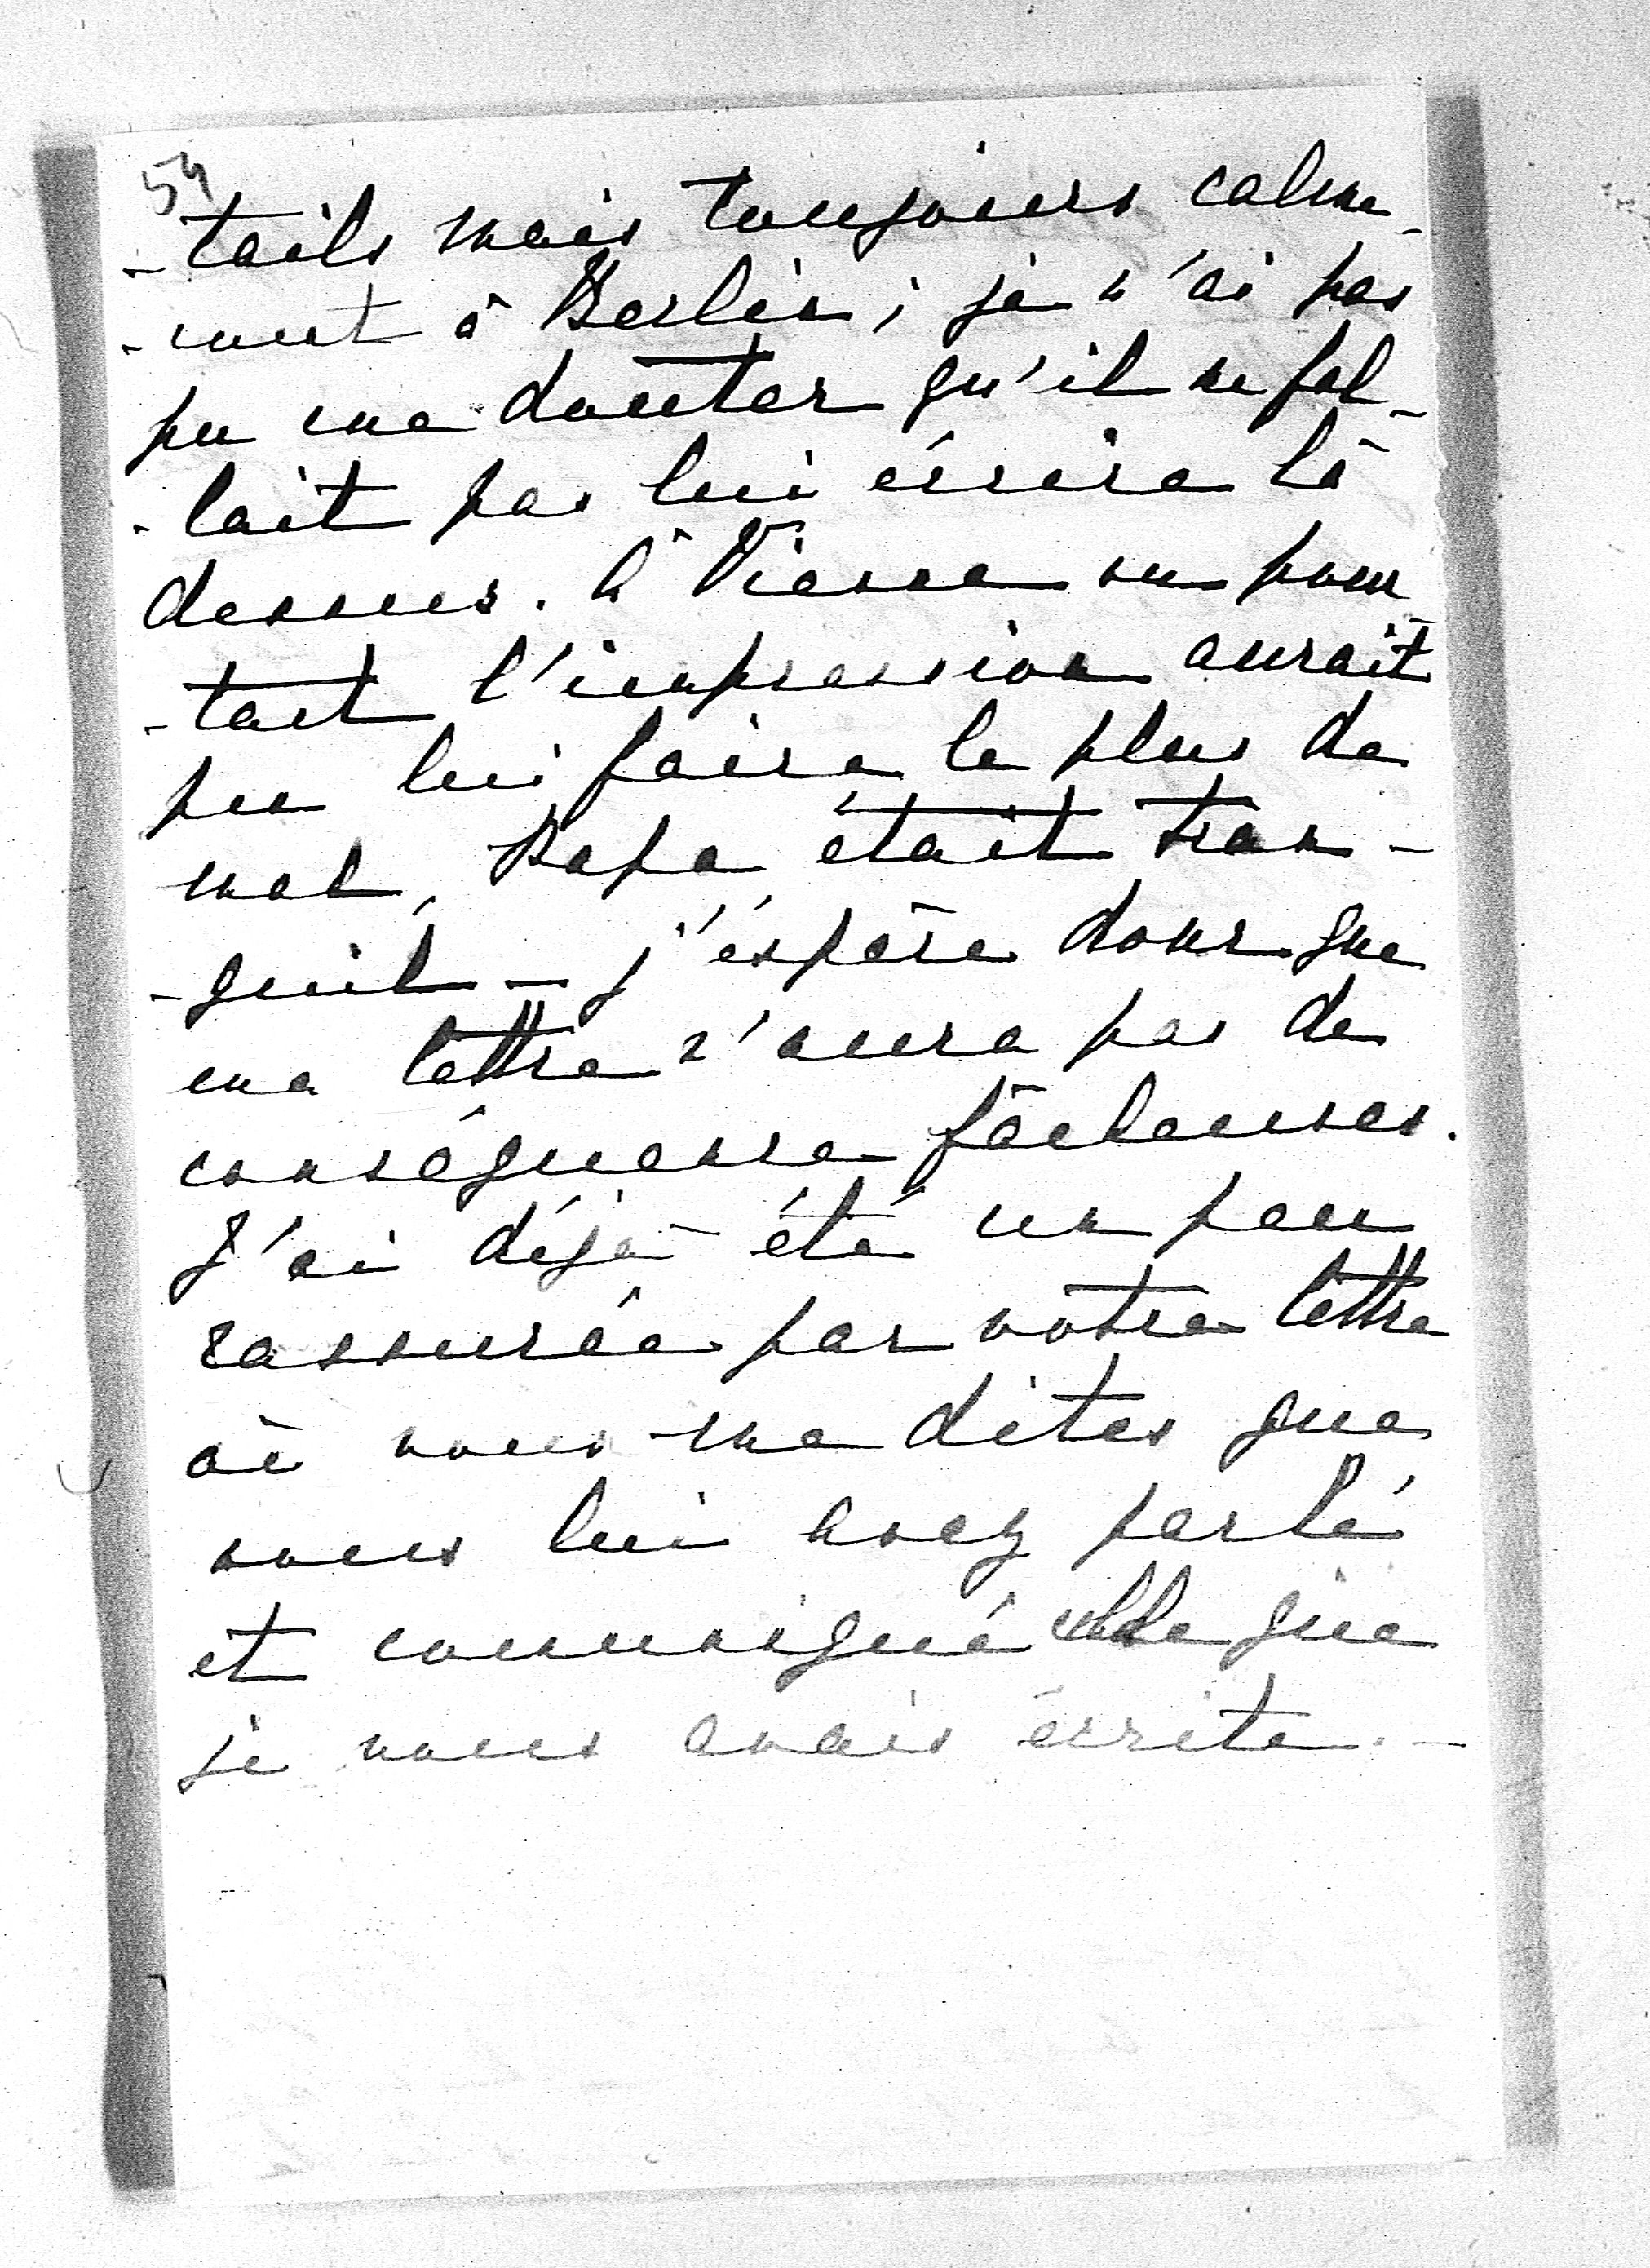 54
-tails mais toujours calme-
-ment à Berlin; je n'ai pas
pu me douter qu'il ne fal-
-lait pas lui écrire là
dessus. A Vienne ou pour-
-tant l'impression aurait
pu lui faire le plus de
mal, Papa était tran-
-quil - j'espère donc que
ma lettre n'aura pas de
conséquence fâcheuses.
J'ai déjà été un peu
rassurée par votre lettre
où vous me dites que
vous lui avez parlé
et communiqué celle que
je vous avais écrite. -